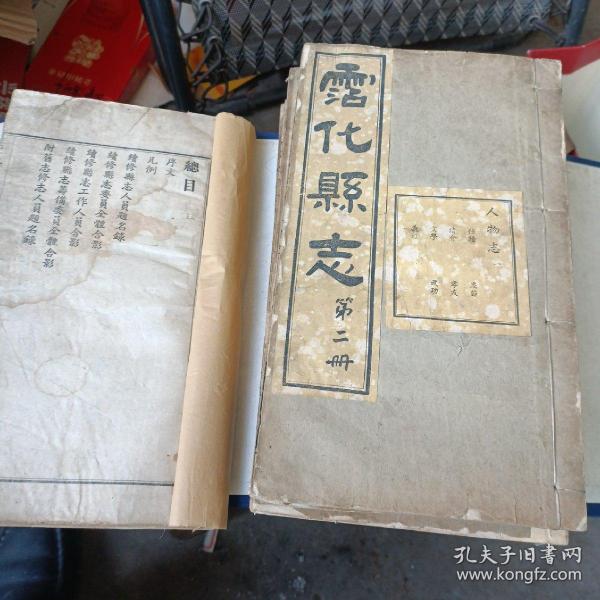 總目
序文
凡例
續修縣志人員題名錄
續修縣志委員全體合影
續修縣志工作人員合影
續修縣志籌備委員全體合影
附舊志修志人員題名錄
霑化縣志
第二冊
人物志
仕績 忠節
孝友
文學 武功
孔夫子旧书网
www.kongfz.com